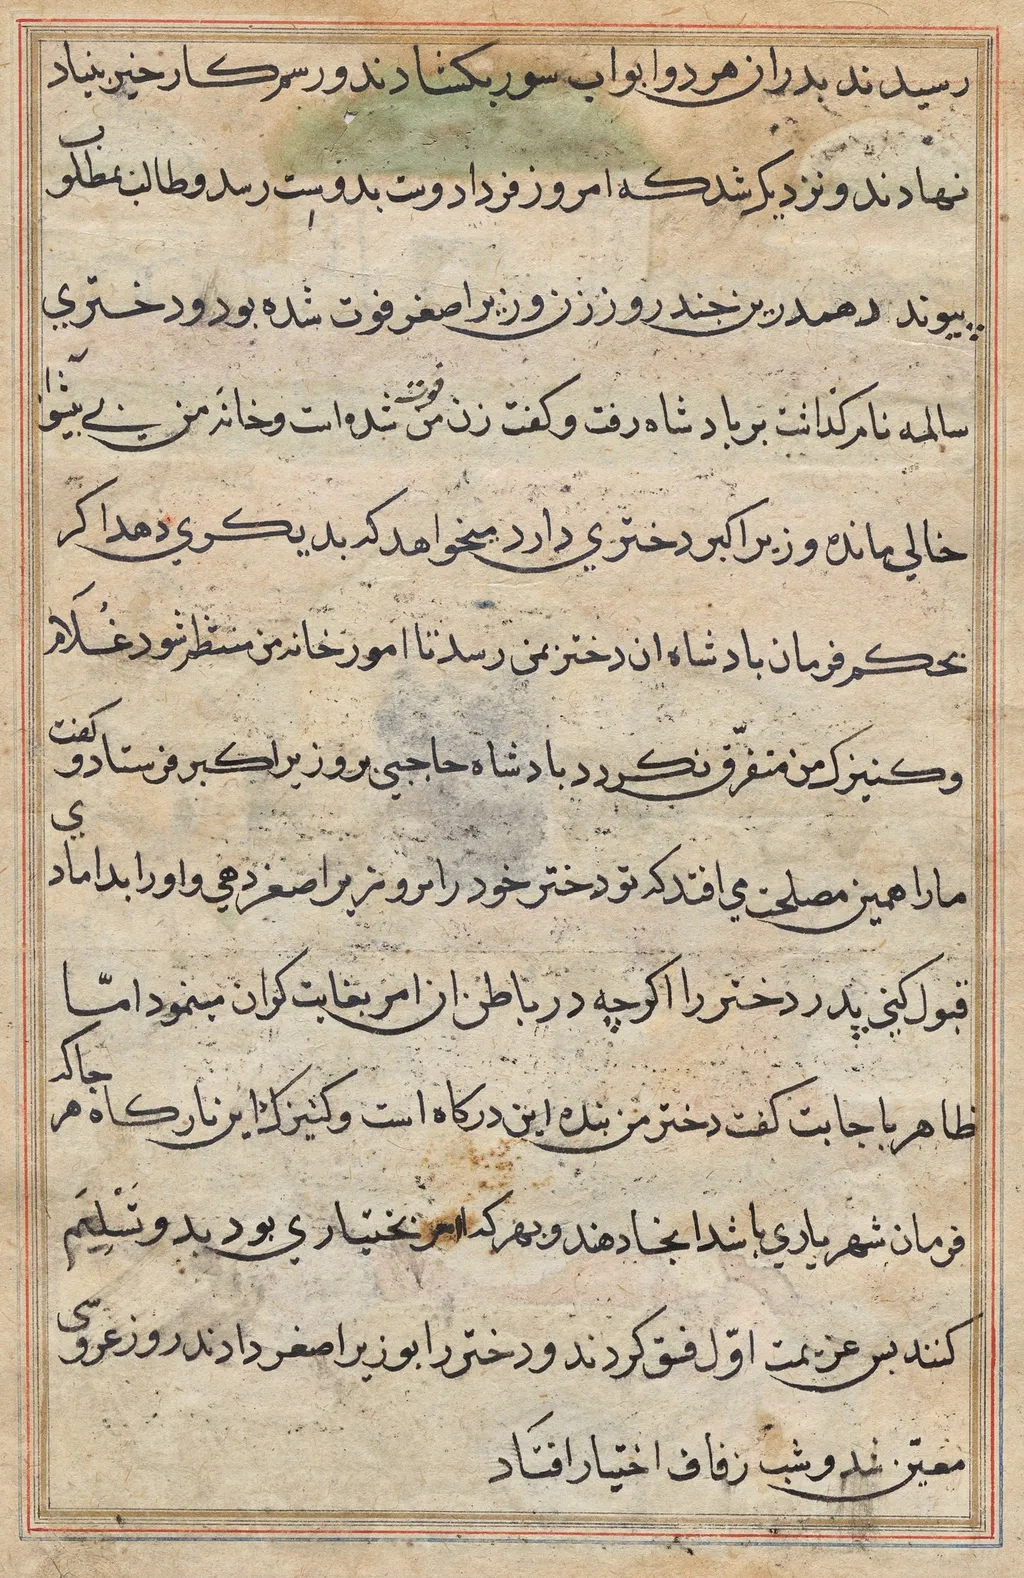 رسیدند پدران هر دو ابواب سور بکشادند و رسم کار خیر بنیاد
نهادند و نزدیک شد که امروز فردا دوست بدوست رسد و طالب بمطلوب
پیوندد همدرین چند روز زن وزیر اصغر فوت شده بود و دختری
سالمه نام کذاشت بر بادشاه رفت و کفت زن من فوت شده است و خانه من بی پیشوا
خالی مانده وزیر اکبر دختری دارد میخواهد که بدیکری دهد اکر
بحکم فرمان بادشاه ان دختر بمن رسد تا امور خانه من منتظر شود غُلَام
و کنیزک من متفرّق نکردد بادشاه حاجبی بر وزیر اکبر فرستاد و کفت
ما را همین مصلحت می افتد که تو دختر خود را بر وزیر اصغر دهی و او را بدامادی
قبول کنی پدر دختر را اکرچه در باطن ان امر بغایت کران مینمود امّا
ظاهر باجابت کفت دختر من بنده این درکاه است و کنیزک این بارکاه هر جا که
فرمان شهریاری باشد انجا دهند و بهر که امر بختیاری بود بدو تَسْلِیَم
کنند بس عزیمت اوّل فسق کردند و دختر را بوزیر اصغر دادند روز عروسی
معیّن شد و شب زفاف اختیار افتاد